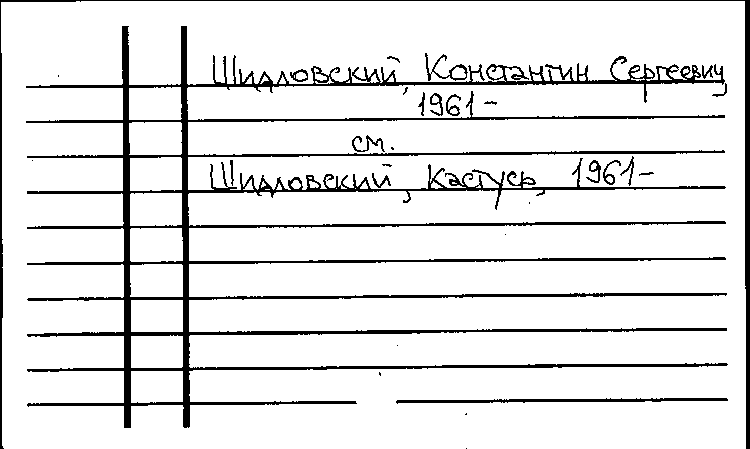 Шидловский, Константин Сергеевич,
1961-
см.
Шидловский, Кастусь, 1961-